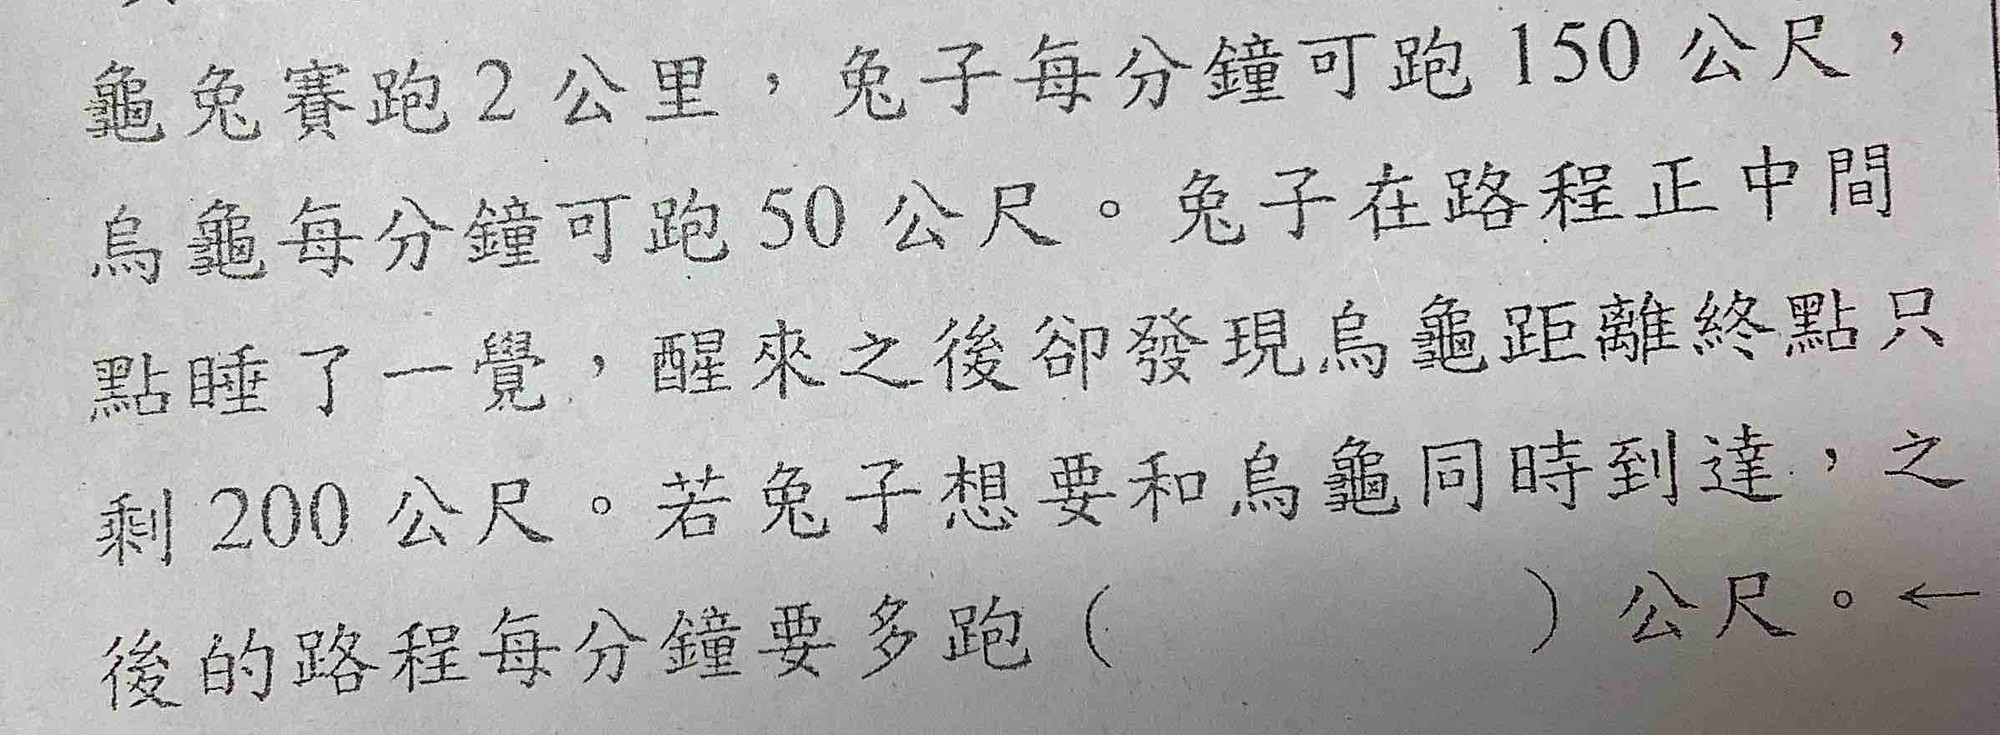 龜兔賽跑2公里，兔子每分鐘可跑150公尺，
烏龜每分鐘可跑50公尺。兔子在路程正中間
點睡了一覺，醒來之後卻發現烏龜距離終點只
剩200公尺。若兔子想要和烏龜同時到達，之
後的路程每分鐘要多跑（　　　　）公尺。←